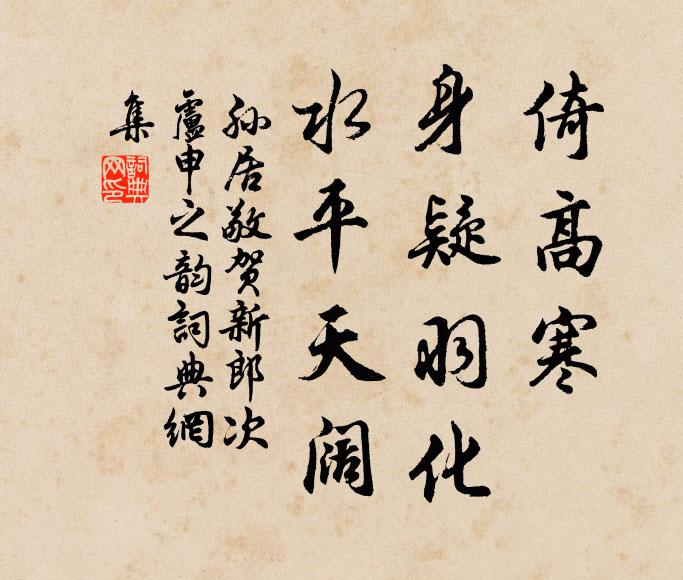 倚高寒
身疑羽化
水平天阔
孙居敬贺新郎次
盧申之韵詞典網
集
詞典
网印